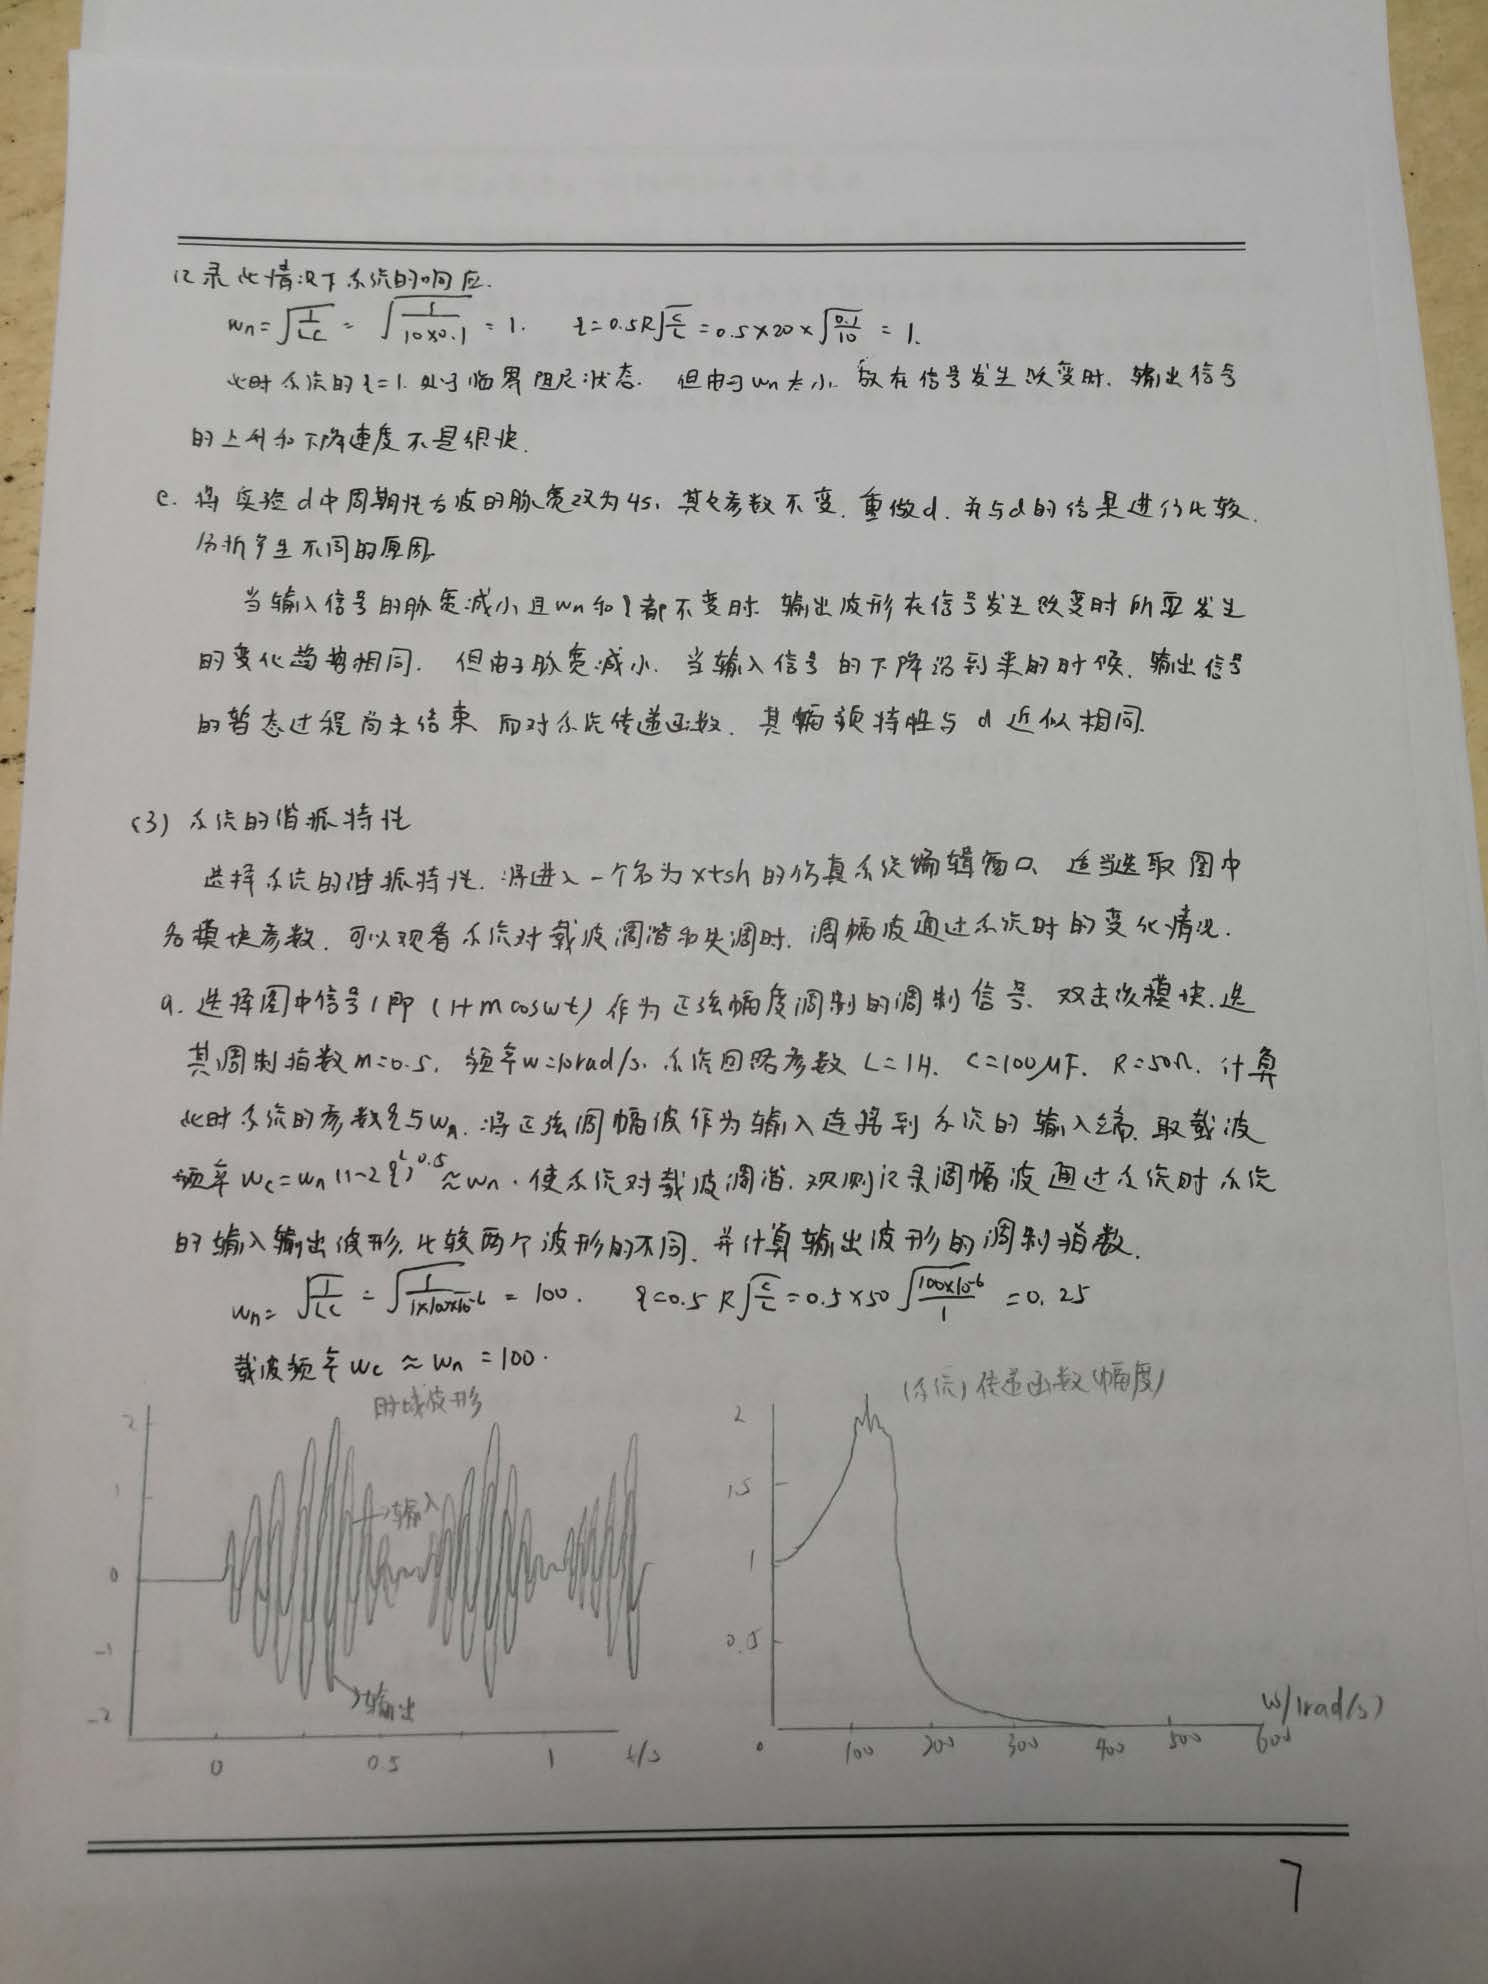 记录此情况下系统的响应.
wn=√(1/LC) = √(1/(10×0.1)) = 1. ξ=0.5R√(C/L) =0.5×20×√(0.1/10) = 1.
此时系统的ξ=1.处于临界阻尼状态. 但由于wn太小.故在信号发生改变时.输出信号
的上升和下降速度不是很快.
e. 将实验d中周期性方波的脉宽改为4s,其它参数不变.重做d.并与d的结果进行比较.
分析产生不同的原因.
当输入信号的脉宽减小且wn和ξ都不变时.输出波形在信号发生改变时所要发生
的变化趋势相同. 但由于脉宽减小.当输入信号的下降沿到来的时候.输出信号
的暂态过程尚未结束 而对系统传递函数.其幅频特性与d近似相同.
(3) 系统的谐振特性
选择系统的谐振特性.将进入一个名为xtsh的仿真系统编辑窗口.适当选取图中
各模块参数.可以观看系统对载波调谐和失调时.调幅波通过系统时的变化情况.
a. 选择图中信号1即 (1+mcoswt) 作为正弦幅度调制的调制信号.双击该模块.选
其调制指数m=0.5, 频率w=10rad/s.系统回路参数 L=1H. C=100μF. R=50Ω.计算
此时系统的参数ξ与wn.将正弦调幅波作为输入连接到系统的输入端.取载波
频率wc=wn(1-2ξ²)^0.5≈wn.使系统对载波调谐.观测记录调幅波通过系统时系统
的输入输出波形.比较两个波形的不同.并计算输出波形的调制指数.
wn= √(1/LC) = √(1/(1×100×10⁻⁶)) = 100. ξ=0.5 R√(C/L) =0.5×50√(100×10⁻⁶/1) =0.25
载波频率wc≈wn=100.
时域波形
(系统)传递函数(幅度)
2
1
0
-1
-2
输入
输出
0 0.5 1 t/s
2
1.5
1
0.5
0 100 200 300 400 500 600
w/(rad/s)
7